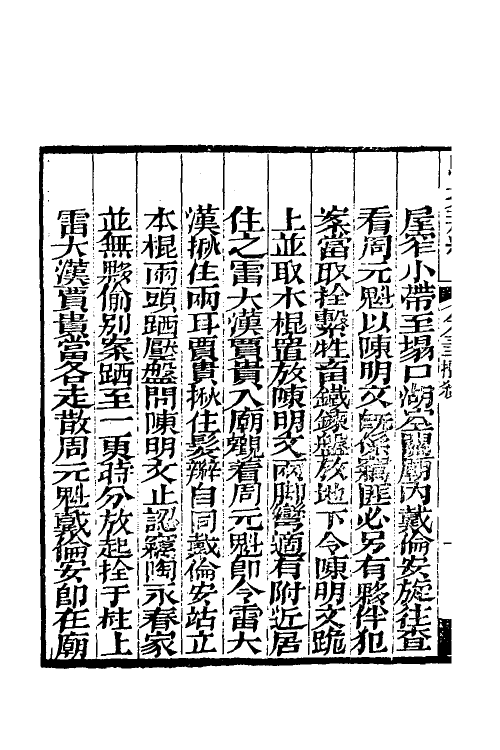 屋窄小帶至塲口湖空關廟內戴倫安旋往查
看周元魁以陳明文旣係竊匪必另有夥伴犯
案當取拴繫牲畜鐵鍊盤放地下令陳明文跪
上並取木棍置放陳明文兩脚彎適有附近居
住之雷大漢賈貴入廟觀看周元魁卽令雷大
漢揪住兩耳賈貴揪住髮辮自同戴倫安站立
本棍兩頭跴壓盤問陳明文止認竊陶永春家
並無夥偷别案跴至一更時分放起拴于柱上
雷大漢賈貴當各走散周元魁戴倫安卽在廟